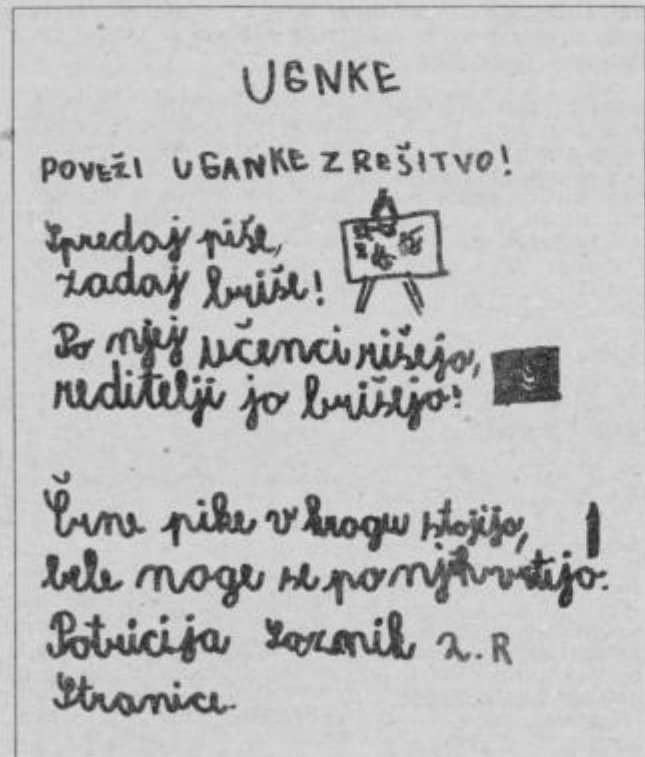 UGNKE
POVEŽI UGANKE Z REŠITVO!
Spredaj piše,
zadaj briše!
Po njej učenci rišejo,
reditelji jo brišejo!
Črne pike v krogu stojijo,
bele noge se po njih vrtijo.
Patricija 2. R
Stranice.